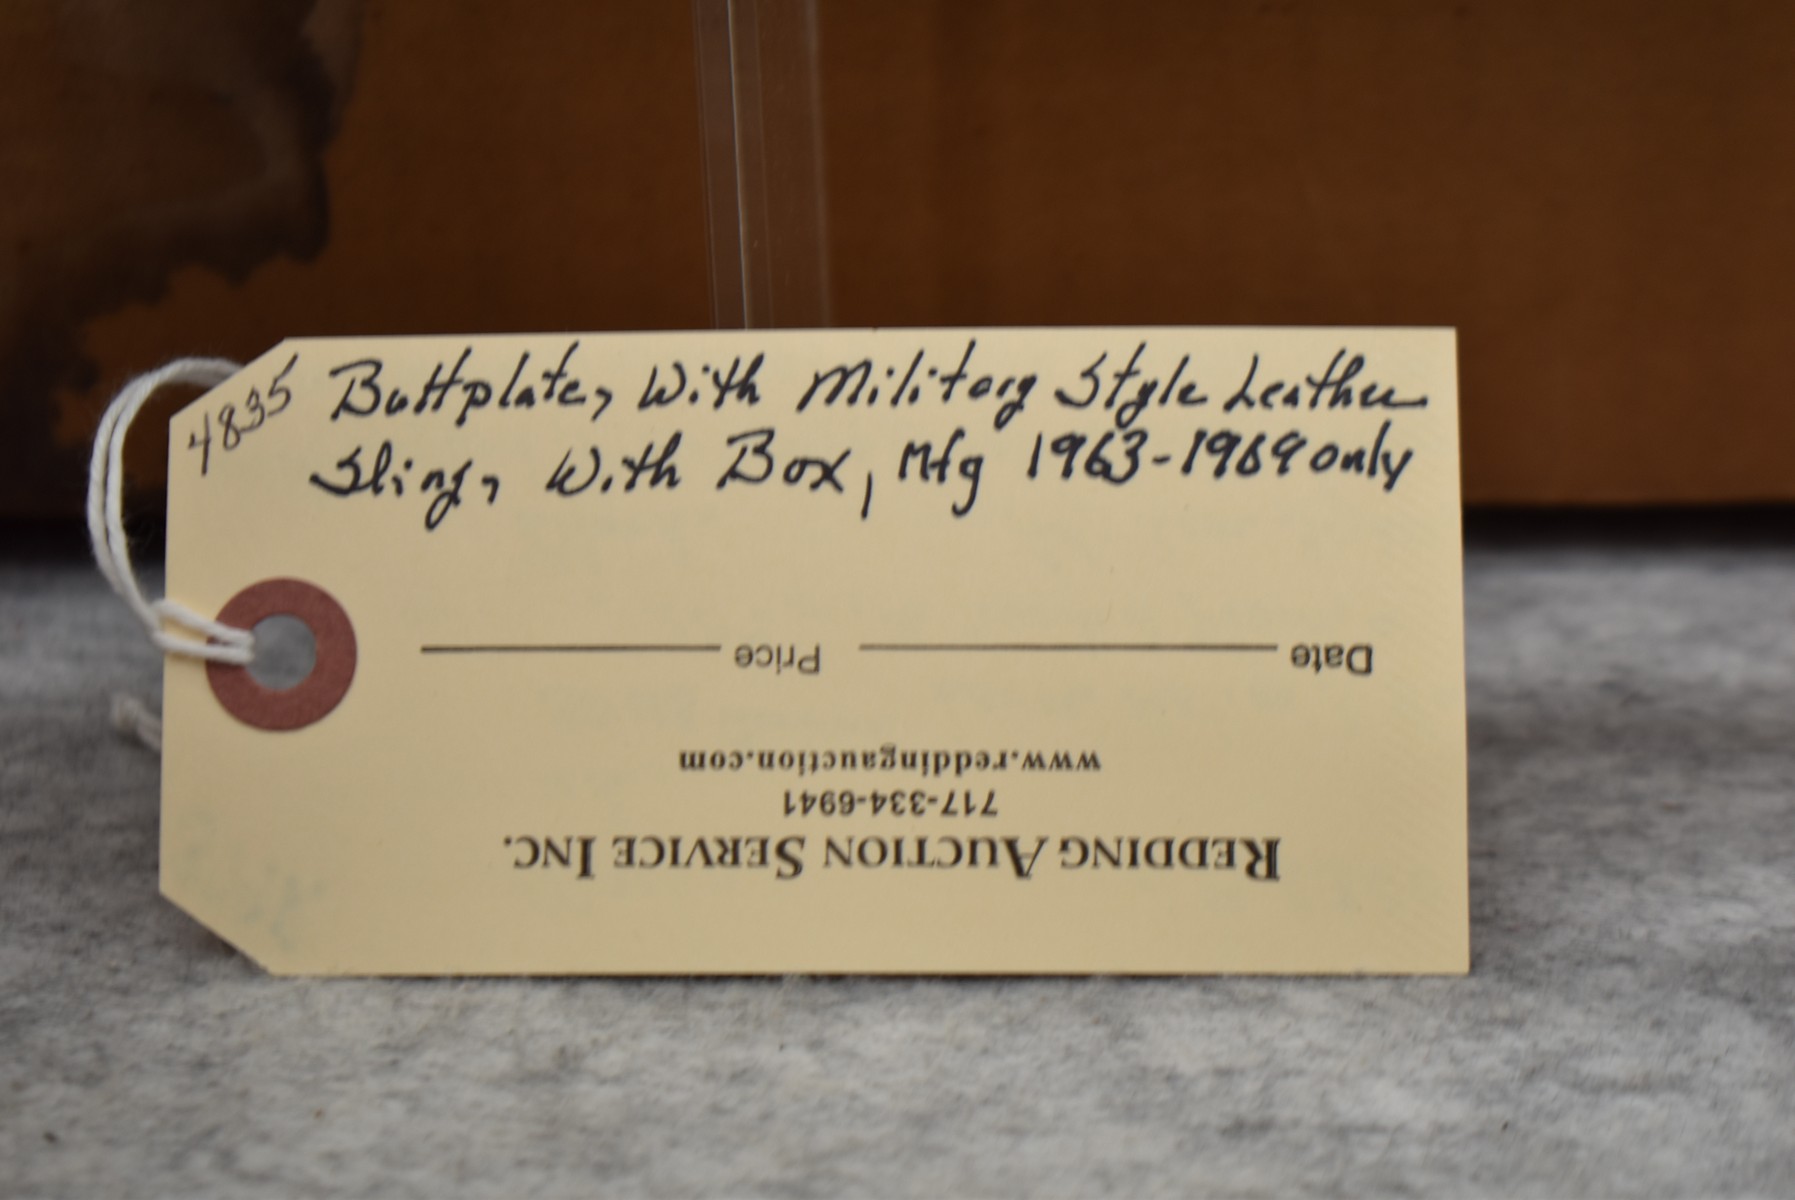 4835 Buttplate, With Military Style Leather
Sling, With Box, Mfg 1963-1969 only
REDDING AUCTION SERVICE INC.
717-334-6941
www.reddingauction.com
Date Price